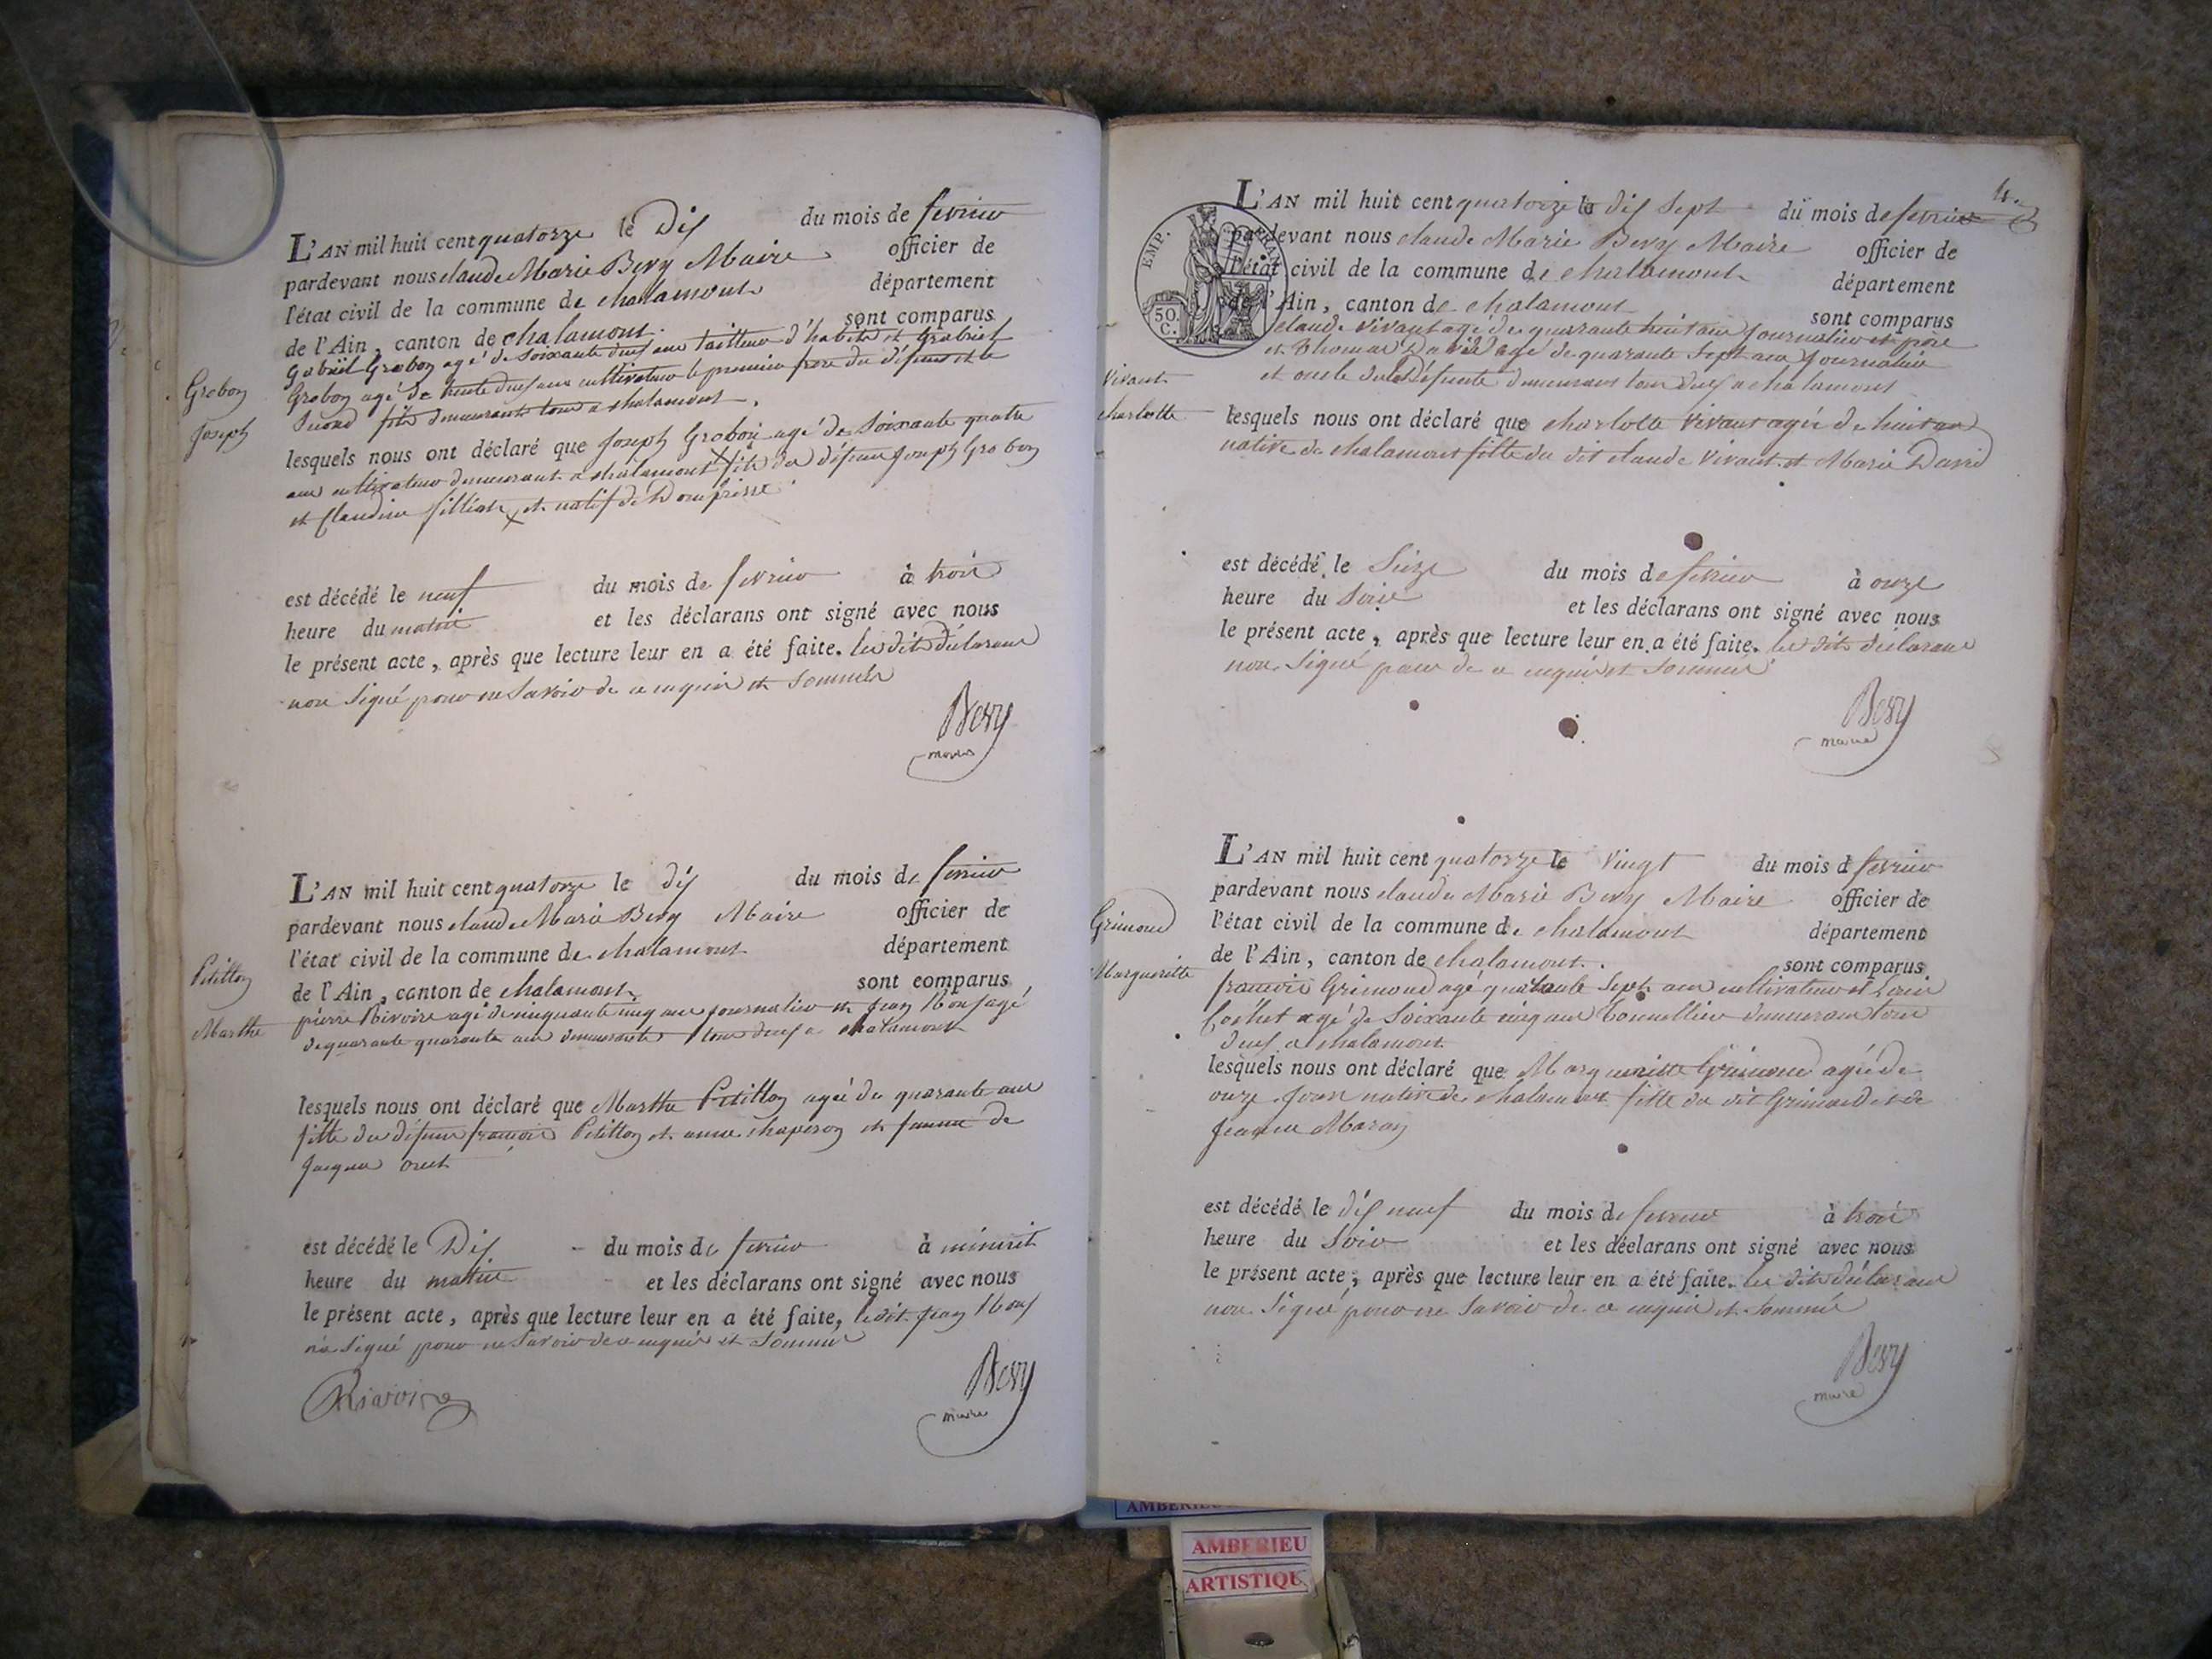 L'AN mil huit cent quatorze le Dix du mois de fevrier
pardevant nous claude Marie Bevy Maire officier de
l'état civil de la commune de chalamont département
de l'Ain, canton de chalamont. sont comparus
Gabriel Grobon agé de soixante deux ans tailleur d'habits et Gabriel
Grobon agé de trente deux ans cultivateur le premier frere du défunt et le
Second fils demeurants tous a chalamont.
Grobon
Joseph
lesquels nous ont déclaré que Joseph Grobon agé de Soixante quatre
ans cultivateur demeurant a chalamont x fils du défunt Joseph Grobon
et Claudine fillion x et natif de Dompierre
est décédé le neuf du mois de fevrier à trois
heure du matin et les déclarans ont signé avec nous
le présent acte, après que lecture leur en a été faite. les dits déclarans
non signé pour ne savoir de ce enquis et sommés
Bevy
maire
L'AN mil huit cent quatorze le dix du mois de fevrier
pardevant nous claude Marie Bevy Maire officier de
l'état civil de la commune de chalamont département
de l'Ain, canton de chalamont. sont comparus
pierre Rivoire agé de cinquante cinq ans journalier et jean agé
de quarante quarante ans demeurants tous deux a chalamont
Petillon
Marthe
lesquels nous ont déclaré que Marthe Petillon agée de quarante ans
fille du défunt francois Petillon et anne chaperon et femme de
Jacques
est décédé le Dix du mois de fevrier à minuit
heure du matin et les déclarans ont signé avec nous
le présent acte, après que lecture leur en a été faite, le dit jean
n'a signé pour ne savoir de ce enquis et sommé
Rivoire
Bevy
maire
4.
EMP. FRAN.
50. C.
L'AN mil huit cent quatorze le dix sept du mois de fevrier
pardevant nous claude Marie Bevy Maire officier de
l'état civil de la commune de chalamont département
de l'Ain, canton de chalamont sont comparus
claude vivant agé de quarante huit ans journalier et père
et thomas David agé de quarante sept ans journalier
et oncle de la défunte demeurans tous deux a chalamont
Vivant
charlotte
lesquels nous ont déclaré que charlotte vivant agée de huit ans
native de chalamont fille du dit claude vivant et Marie David
est décédé le Seize du mois de fevrier à onze
heure du soir et les déclarans ont signé avec nous
le présent acte, après que lecture leur en a été faite. les dits declarans
non signé pour de ce enquis et sommés
Bevy
maire
L'AN mil huit cent quatorze le vingt du mois d fevrier
pardevant nous claude Marie Bevy Maire officier de
l'état civil de la commune de chalamont département
de l'Ain, canton de chalamont. sont comparus
Grimond
Margueritte
francois Grimond agé quarante sept ans cultivateur et
agé de soixante cinq ans tonnellier demeurans tous
deux a chalamont
lesquels nous ont déclaré que Margueritte Grimond agée de
onze jours native de chalamont fille du dit Grimond et de
jeanne Maron
est décédé le dix neuf du mois de fevrier à trois
heure du soir et les déclarans ont signé avec nous
le présent acte, après que lecture leur en a été faite. les dits déclarans
non signé pour ne savoir de ce enquis et sommés
Bevy
maire
AMBERIEU
AMBERIEU
ARTISTIQU